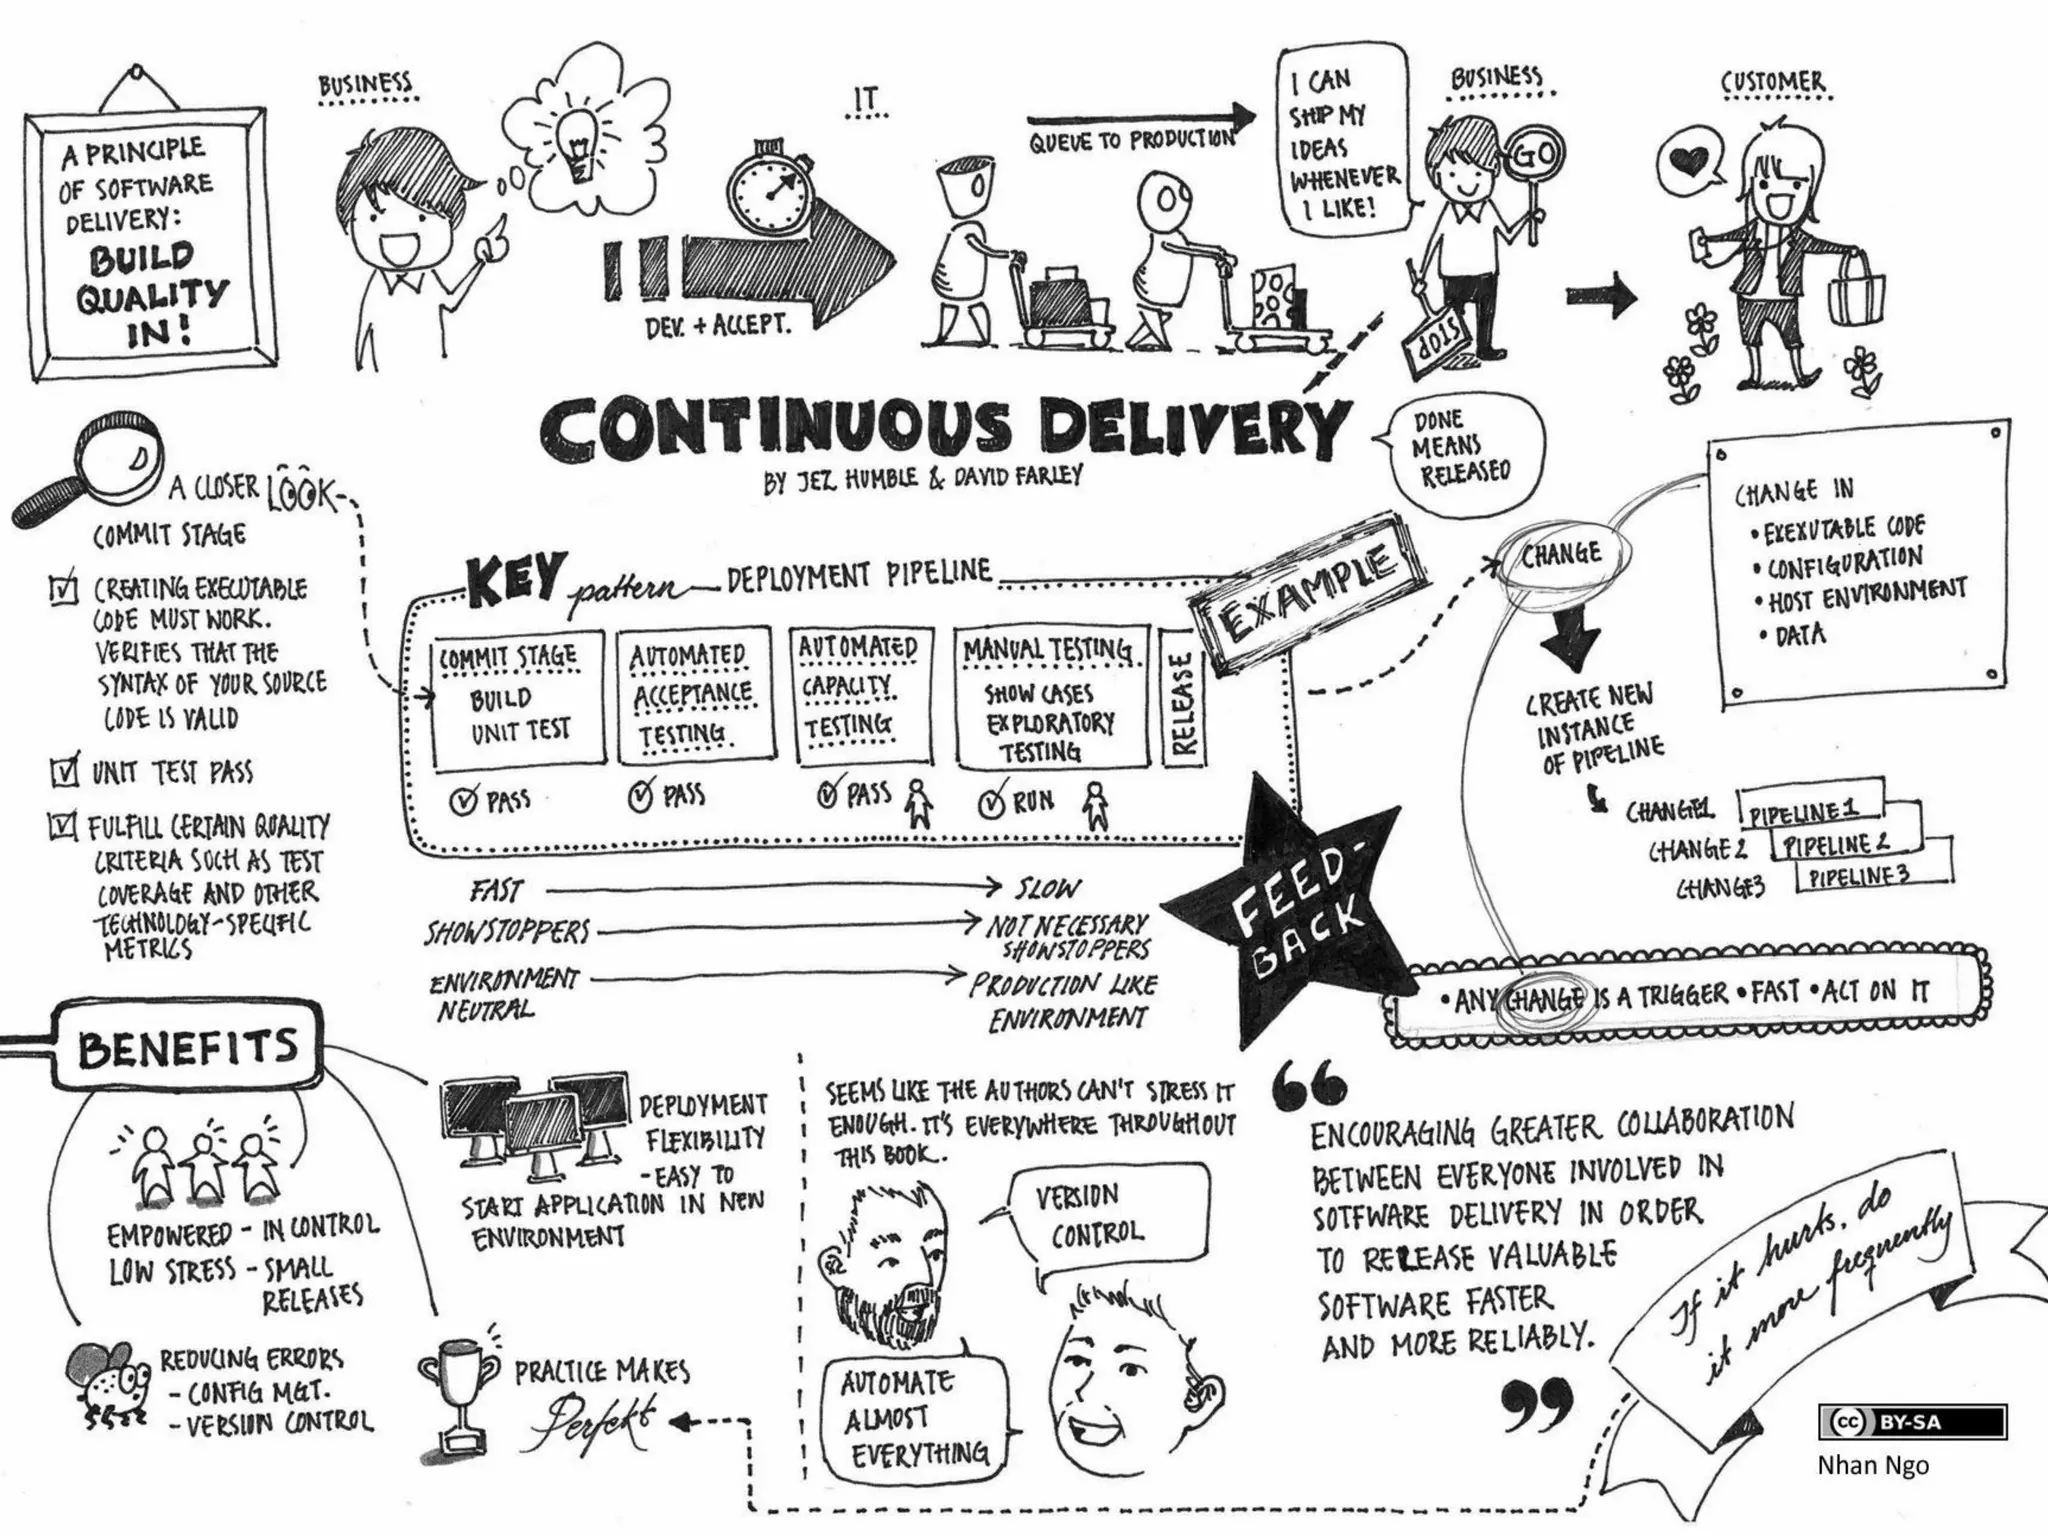 A PRINCIPLE
OF SOFTWARE
DELIVERY:
BUILD
QUALITY
IN!
BUSINESS
DEV. + ACCEPT.
IT
QUEUE TO PRODUCTION
I CAN
SHIP MY
IDEAS
WHENEVER
I LIKE!
BUSINESS
GO
STOP
CUSTOMER
CONTINUOUS DELIVERY
BY JEZ HUMBLE & DAVID FARLEY
DONE
MEANS
RELEASED
A CLOSER LOOK
COMMIT STAGE
CREATING EXECUTABLE
CODE MUST WORK.
VERIFIES THAT THE
SYNTAX OF YOUR SOURCE
CODE IS VALID
UNIT TEST PASS
FULFILL CERTAIN QUALITY
CRITERIA SUCH AS TEST
COVERAGE AND OTHER
TECHNOLOGY-SPECIFIC
METRICS
KEY pattern DEPLOYMENT PIPELINE
EXAMPLE
COMMIT STAGE
BUILD
UNIT TEST
PASS
AUTOMATED
ACCEPTANCE
TESTING
PASS
AUTOMATED
CAPACITY
TESTING
PASS
MANUAL TESTING
SHOW CASES
EXPLORATORY
TESTING
RUN
RELEASE
FAST
SLOW
SHOWSTOPPERS
NOT NECESSARY
SHOWSTOPPERS
ENVIRONMENT
NEUTRAL
PRODUCTION LIKE
ENVIRONMENT
FEED-
BACK
CHANGE
CHANGE IN
• EXEXUTABLE CODE
• CONFIGURATION
• HOST ENVIRONMENT
• DATA
CREATE NEW
INSTANCE
OF PIPELINE
CHANGE1 PIPELINE1
CHANGE2 PIPELINE2
CHANGE3 PIPELINE3
• ANY CHANGE IS A TRIGGER • FAST • ACT ON IT
BENEFITS
EMPOWERED - IN CONTROL
LOW STRESS - SMALL
RELEASES
REDUCING ERRORS
- CONFIG MGT.
- VERSION CONTROL
DEPLOYMENT
FLEXIBILITY
- EASY TO
START APPLICATION IN NEW
ENVIRONMENT
PRACTICE MAKES
Perfekt
SEEMS LIKE THE AUTHORS CAN'T STRESS IT
ENOUGH. IT'S EVERYWHERE THROUGHOUT
THIS BOOK.
VERSION
CONTROL
AUTOMATE
ALMOST
EVERYTHING
“ENCOURAGING GREATER COLLABORATION
BETWEEN EVERYONE INVOLVED IN
SOTFWARE DELIVERY IN ORDER
TO RELEASE VALUABLE
SOFTWARE FASTER
AND MORE RELIABLY.”
If it hurts, do
it more frequently
cc BY-SA
Nhan Ngo